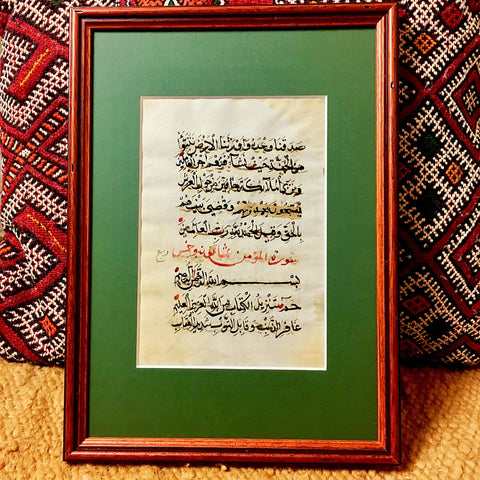 صدقنا وعده واورثنا الارض نتبوا
من الجنة حيث نشاء فنعم اجر العاملين
وترى الملائكة حافين من حول العرش
يسبحون بحمد ربهم وقضي بينهم
بالحق وقيل الحمد لله رب العالمين
سورة المؤمن وخمس
بسم الله الرحمن الرحيم
حم تنزيل الكتاب من الله العزيز العليم
غافر الذنب وقابل التوب شديد العقاب